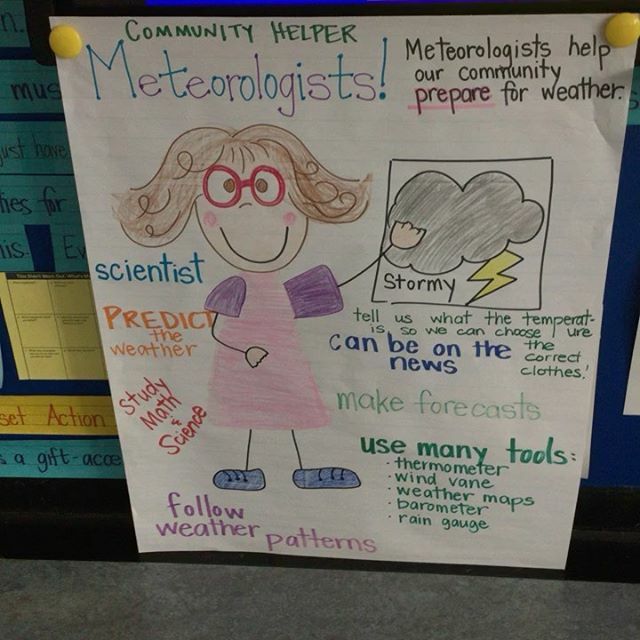 COMMUNITY HELPER
Meteorologists!
Meteorologists help
our community
prepare for weather.
Stormy
scientist
PREDICT
the
weather
Study
Math
&
Science
follow
weather patterns
tell us what the temperat-
ure
is, so we can choose
the
correct
clothes!
can be on the
news
make forecasts
use many tools:
· thermometer
· wind vane
· weather maps
· barometer
· rain gauge
mus
just have
for
his.
set Action
a gift-